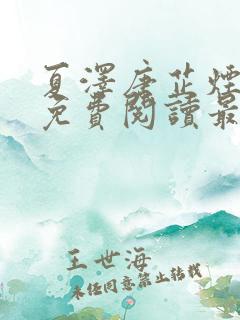 夏澤唐芷煙
免費閱讀最
王世海
未經同意禁止轉載